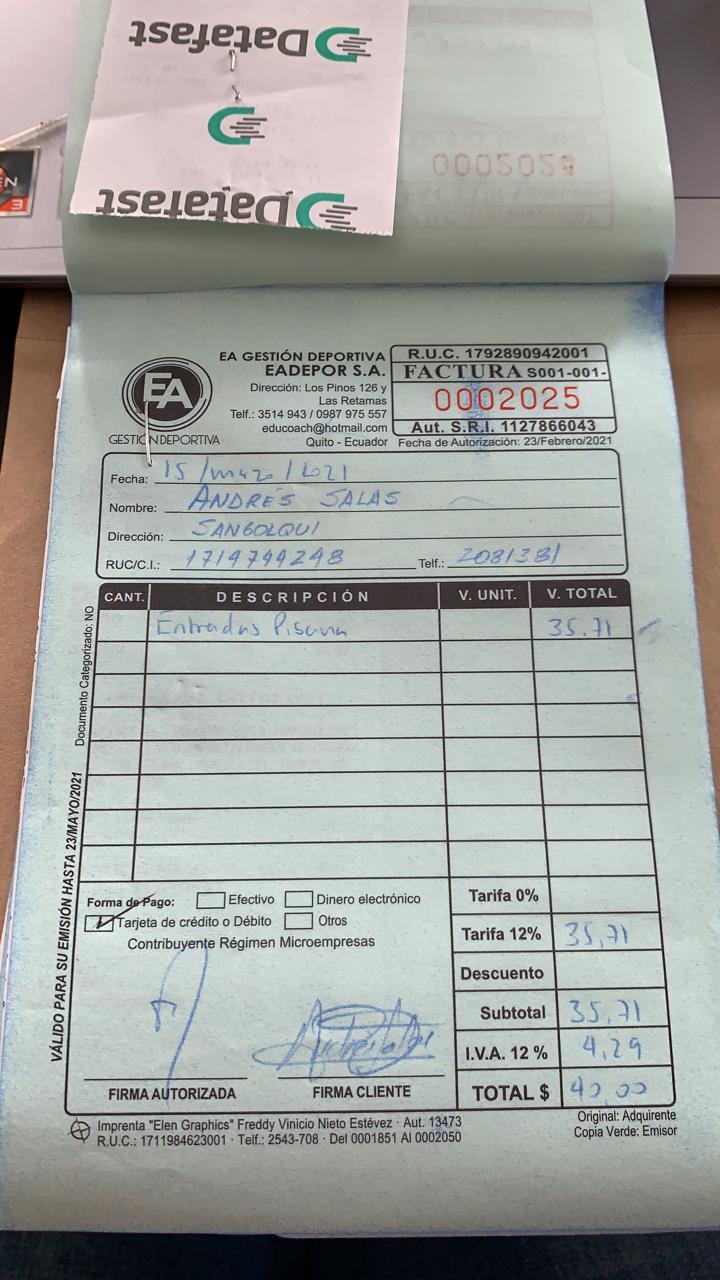 Datafast
Datafast
0002024
EN
3
EA
GESTIÓN DEPORTIVA
EA GESTIÓN DEPORTIVA
EADEPOR S.A.
Dirección: Los Pinos 126 y
Las Retamas
Telf.: 3514 943 / 0987 975 557
educoach@hotmail.com
Quito - Ecuador
R.U.C. 1792890942001
FACTURA S001-001-
0002025
Aut. S.R.I. 1127866043
Fecha de Autorización: 23/Febrero/2021
Fecha: 15 / marzo / 2021
Nombre: ANDRÉS SALAS
Dirección: SANGOLQUI
RUC/C.I.: 1719799248 Telf.: 2081381
CANT. DESCRIPCIÓN V. UNIT. V. TOTAL
Entradas Piscina 35.71
Documento Categorizado: NO
VÁLIDO PARA SU EMISIÓN HASTA 23/MAYO/2021
Forma de Pago: Efectivo Dinero electrónico
Tarjeta de crédito o Débito Otros
Contribuyente Régimen Microempresas
Tarifa 0%
Tarifa 12% 35,71
Descuento
Subtotal 35,71
I.V.A. 12 % 4,29
TOTAL $ 40,00
FIRMA AUTORIZADA FIRMA CLIENTE
Imprenta "Elen Graphics" Freddy Vinicio Nieto Estévez · Aut. 13473
R.U.C.: 1711984623001 · Telf.: 2543-708 · Del 0001851 Al 0002050
Original: Adquirente
Copia Verde: Emisor